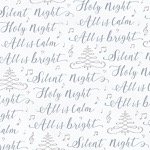 Silent Night
Holy Night
All is Calm
All is bright.
Silent Night
Holy Night
All is Calm
All is bright.
Silent Night
Holy Night
All is Calm
All is bright.
Silent Night
Holy Night
All is Calm
All is bright.
Silent Night